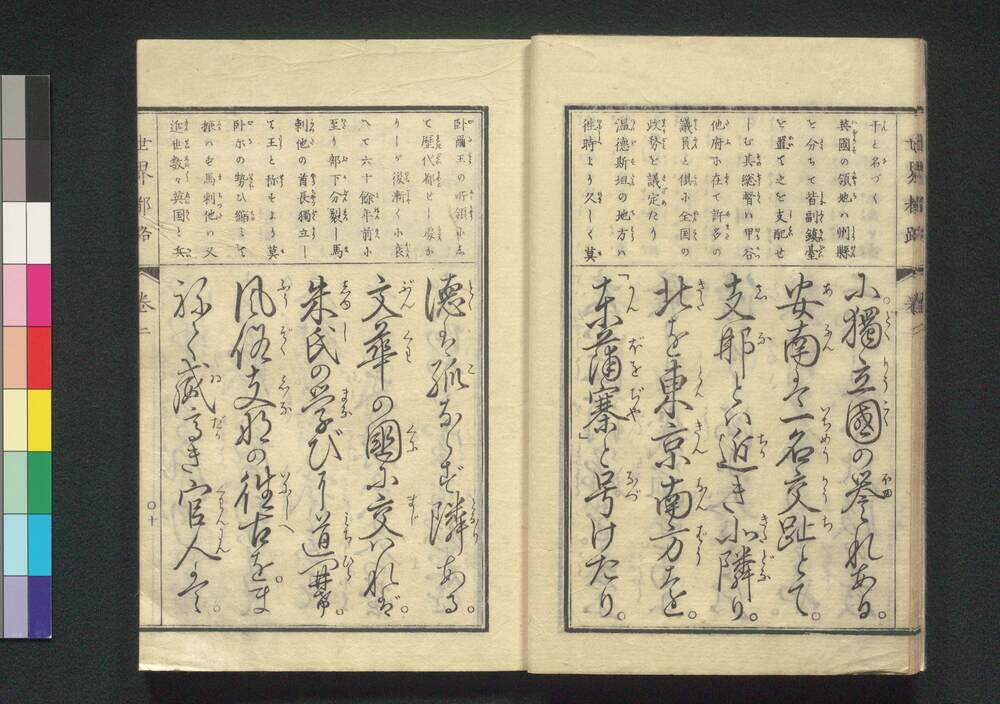 世界都路
巻二
干と名づく
英國の領地ハ州縣
を分ちて皆副鎮臺
を置て之を支配せ
しむ其惣督ハ甲谷
他府に在て許多の
議員と倶に全国の
政務を議定たり
温德斯坦の地方ハ
徃時より久しく莫
に獨立國の誉れある。
安南は一名交趾とて。
支那とハ近き小隣り。
北を東京南方を。
「東蒲寨」と号けたり。
臥爾王の所領にし
て歴代都せし處か
りしが後漸く小衰
へて六十餘年前に
至り部下分裂し馬
刺他の酋長獨立し
て王と称せより莫
臥尓の勢ひ縮みて
振ハも馬刺他ハ又
近世数々英国と兵
徳は孤ならず隣ある。
文華の國に交ハれバ。
朱氏の学びし道開。
風俗支那の徃古を。ま
ねて威高き官人は。
世界都路
巻二
〇十